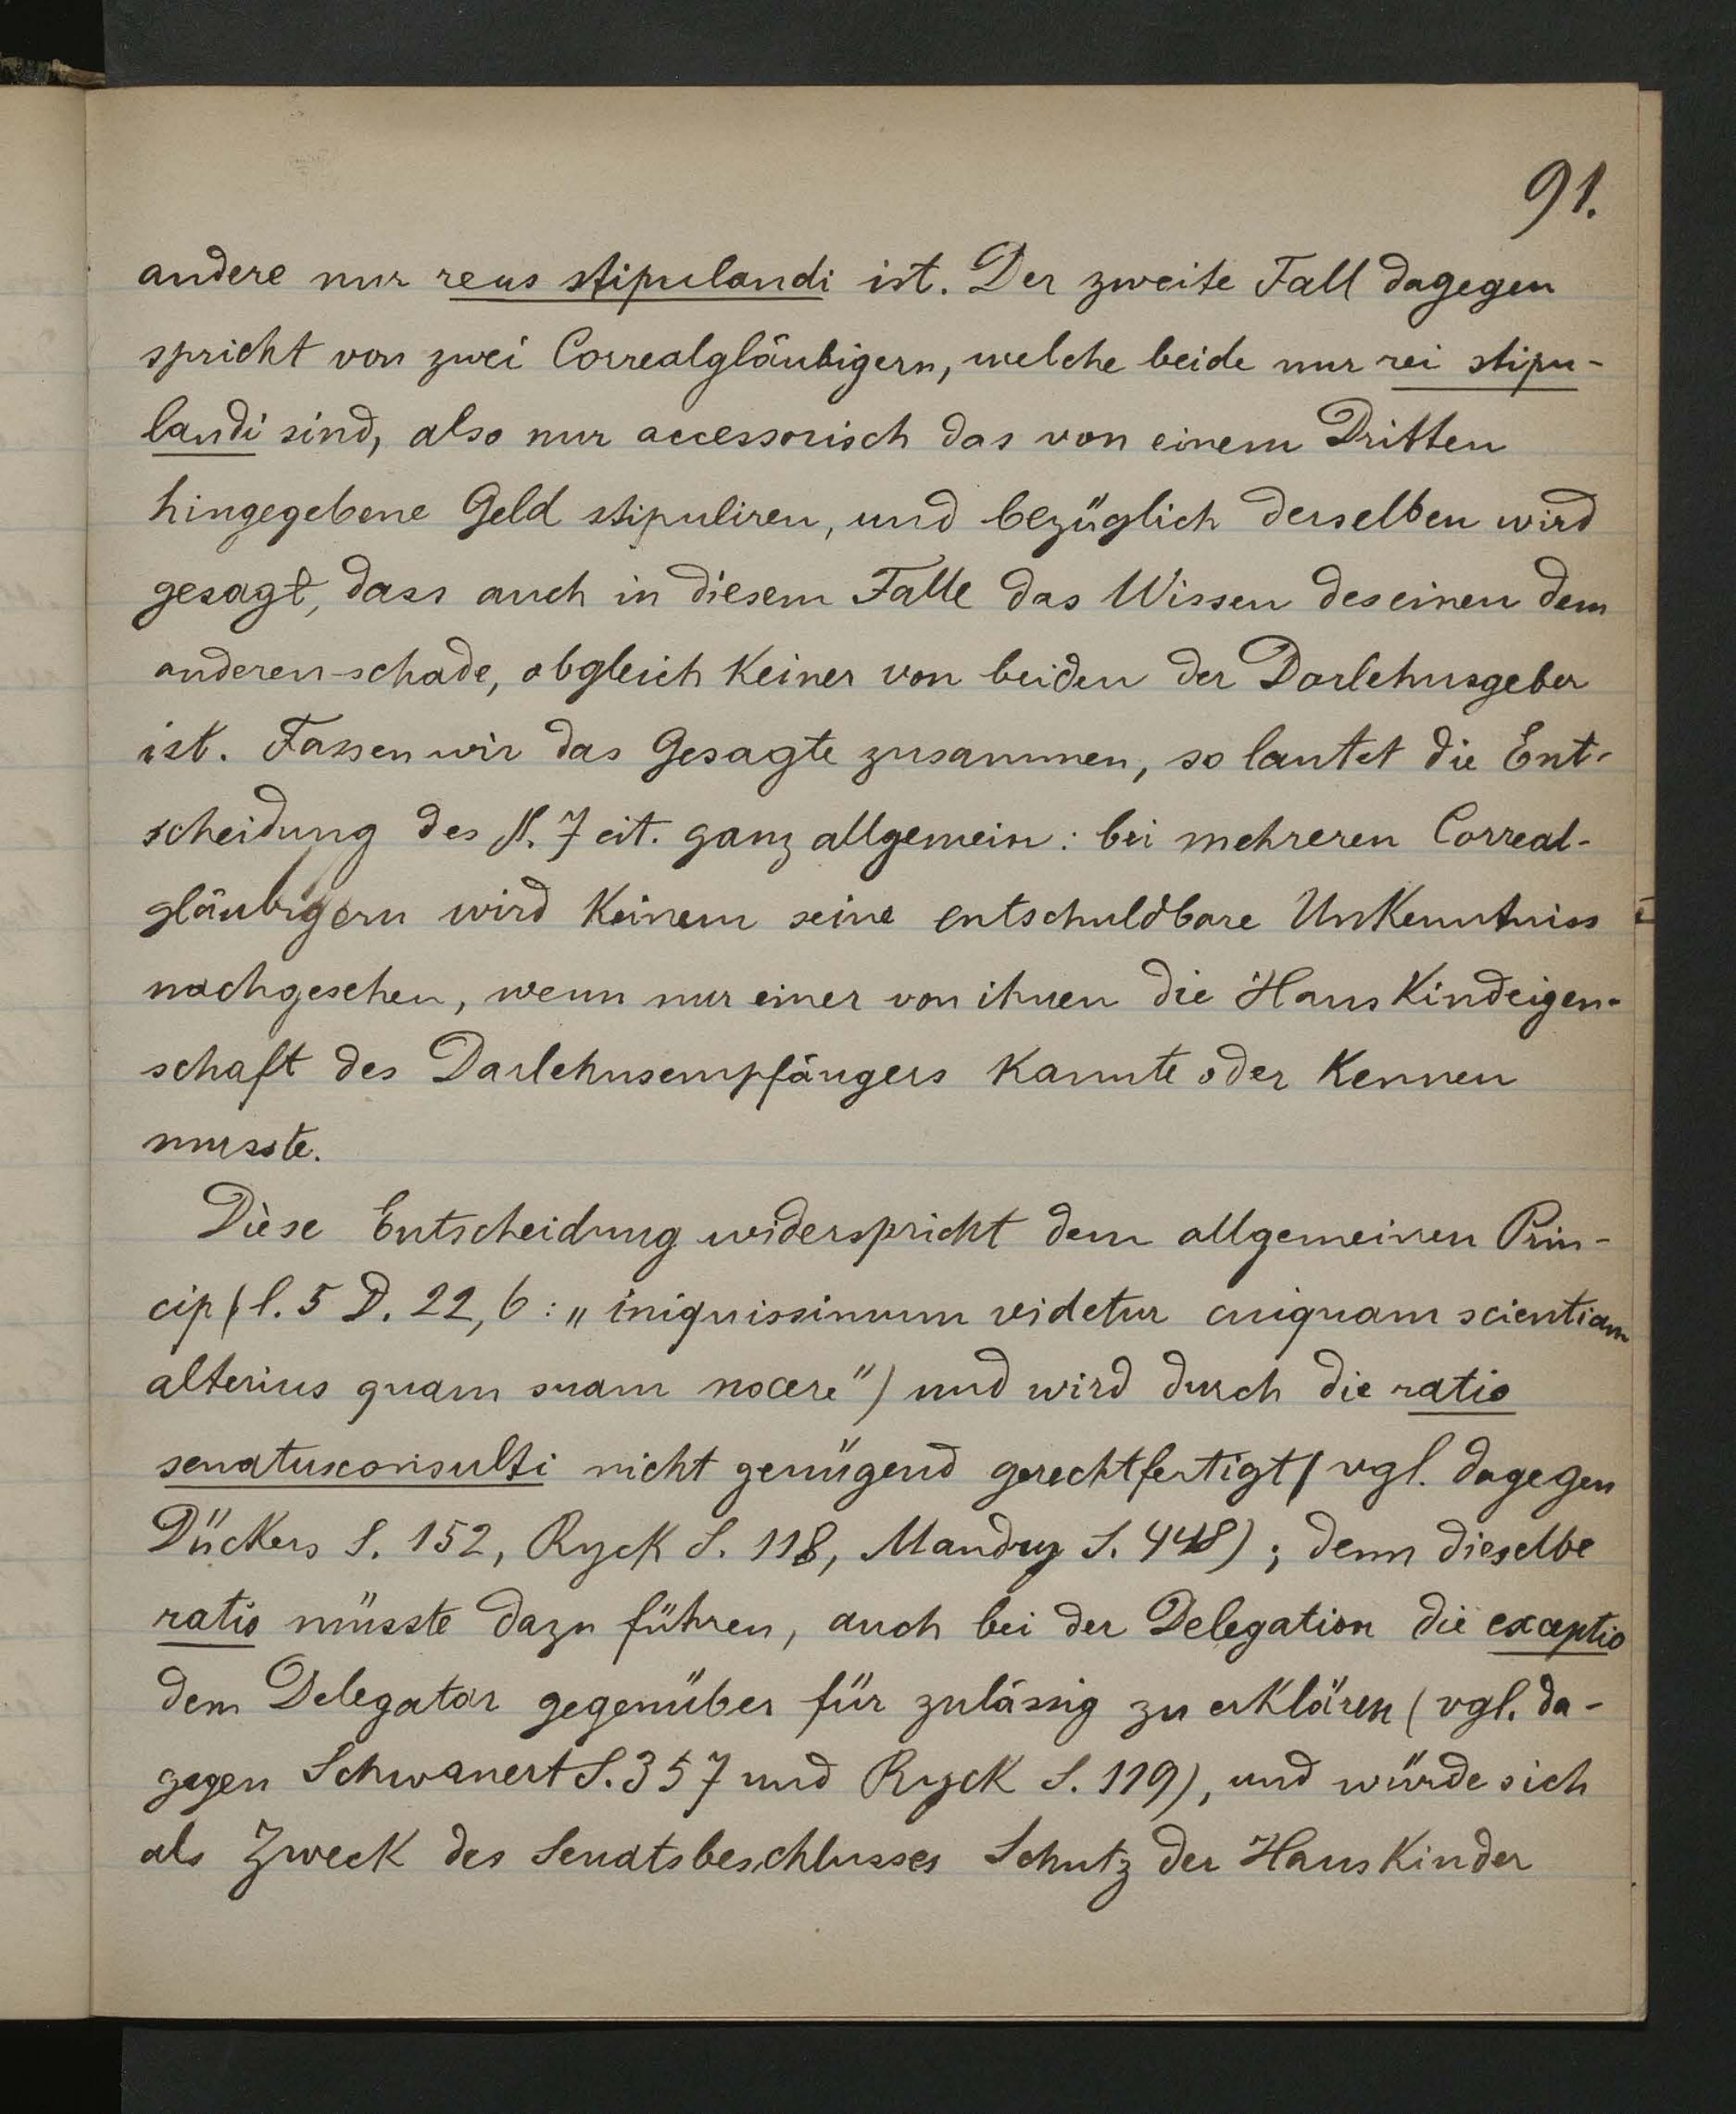 91.
andere nur reus stipulandi ist. Der zweite Fall dagegen
spricht von zwei Correalgläubigern, welche beide nur rei stipu-
landi sind, also nur accessorisch das von einem Dritten
hingegebene Geld stipuliren, und bezüglich derselben wird
gesagt, dass auch in diesem Falle das Wissen des einen dem
anderen schade, obgleich Keiner von beiden der Darlehnsgeber
ist. Fassen wir das Gesagte zusammen, so lautet die Ent-
scheidung des §. 7 cit. ganz allgemein: bei mehreren Correal-
gläubigern wird Keinem seine entschuldbare Unkenntniss
nachgesehen, wenn nur einer von ihnen die Hauskindeigen-
schaft des Darlehnsempfängers kannte oder kennen
musste.
Diese Entscheidung widerspricht dem allgemeinen Prin-
cip (l. 5 D. 22, 6: „iniquissimum videtur cuiquam scientiam
alterius quam suam nocere") und wird durch die ratio
senatusconsulti nicht genügend gerechtfertigt (vgl. dagegen
Dückers S. 152, Ryck S. 118, Mandry S. 448); denn dieselbe
ratio müsste dazu führen, auch bei der Delegation die exceptio
dem Delegatar gegenüber für zulässig zu erklären (vgl. da-
gegen Schwanert S. 357 und Ryck S. 119), und würde sich
als Zweck des Senatsbeschlusses Schutz der Hauskinder